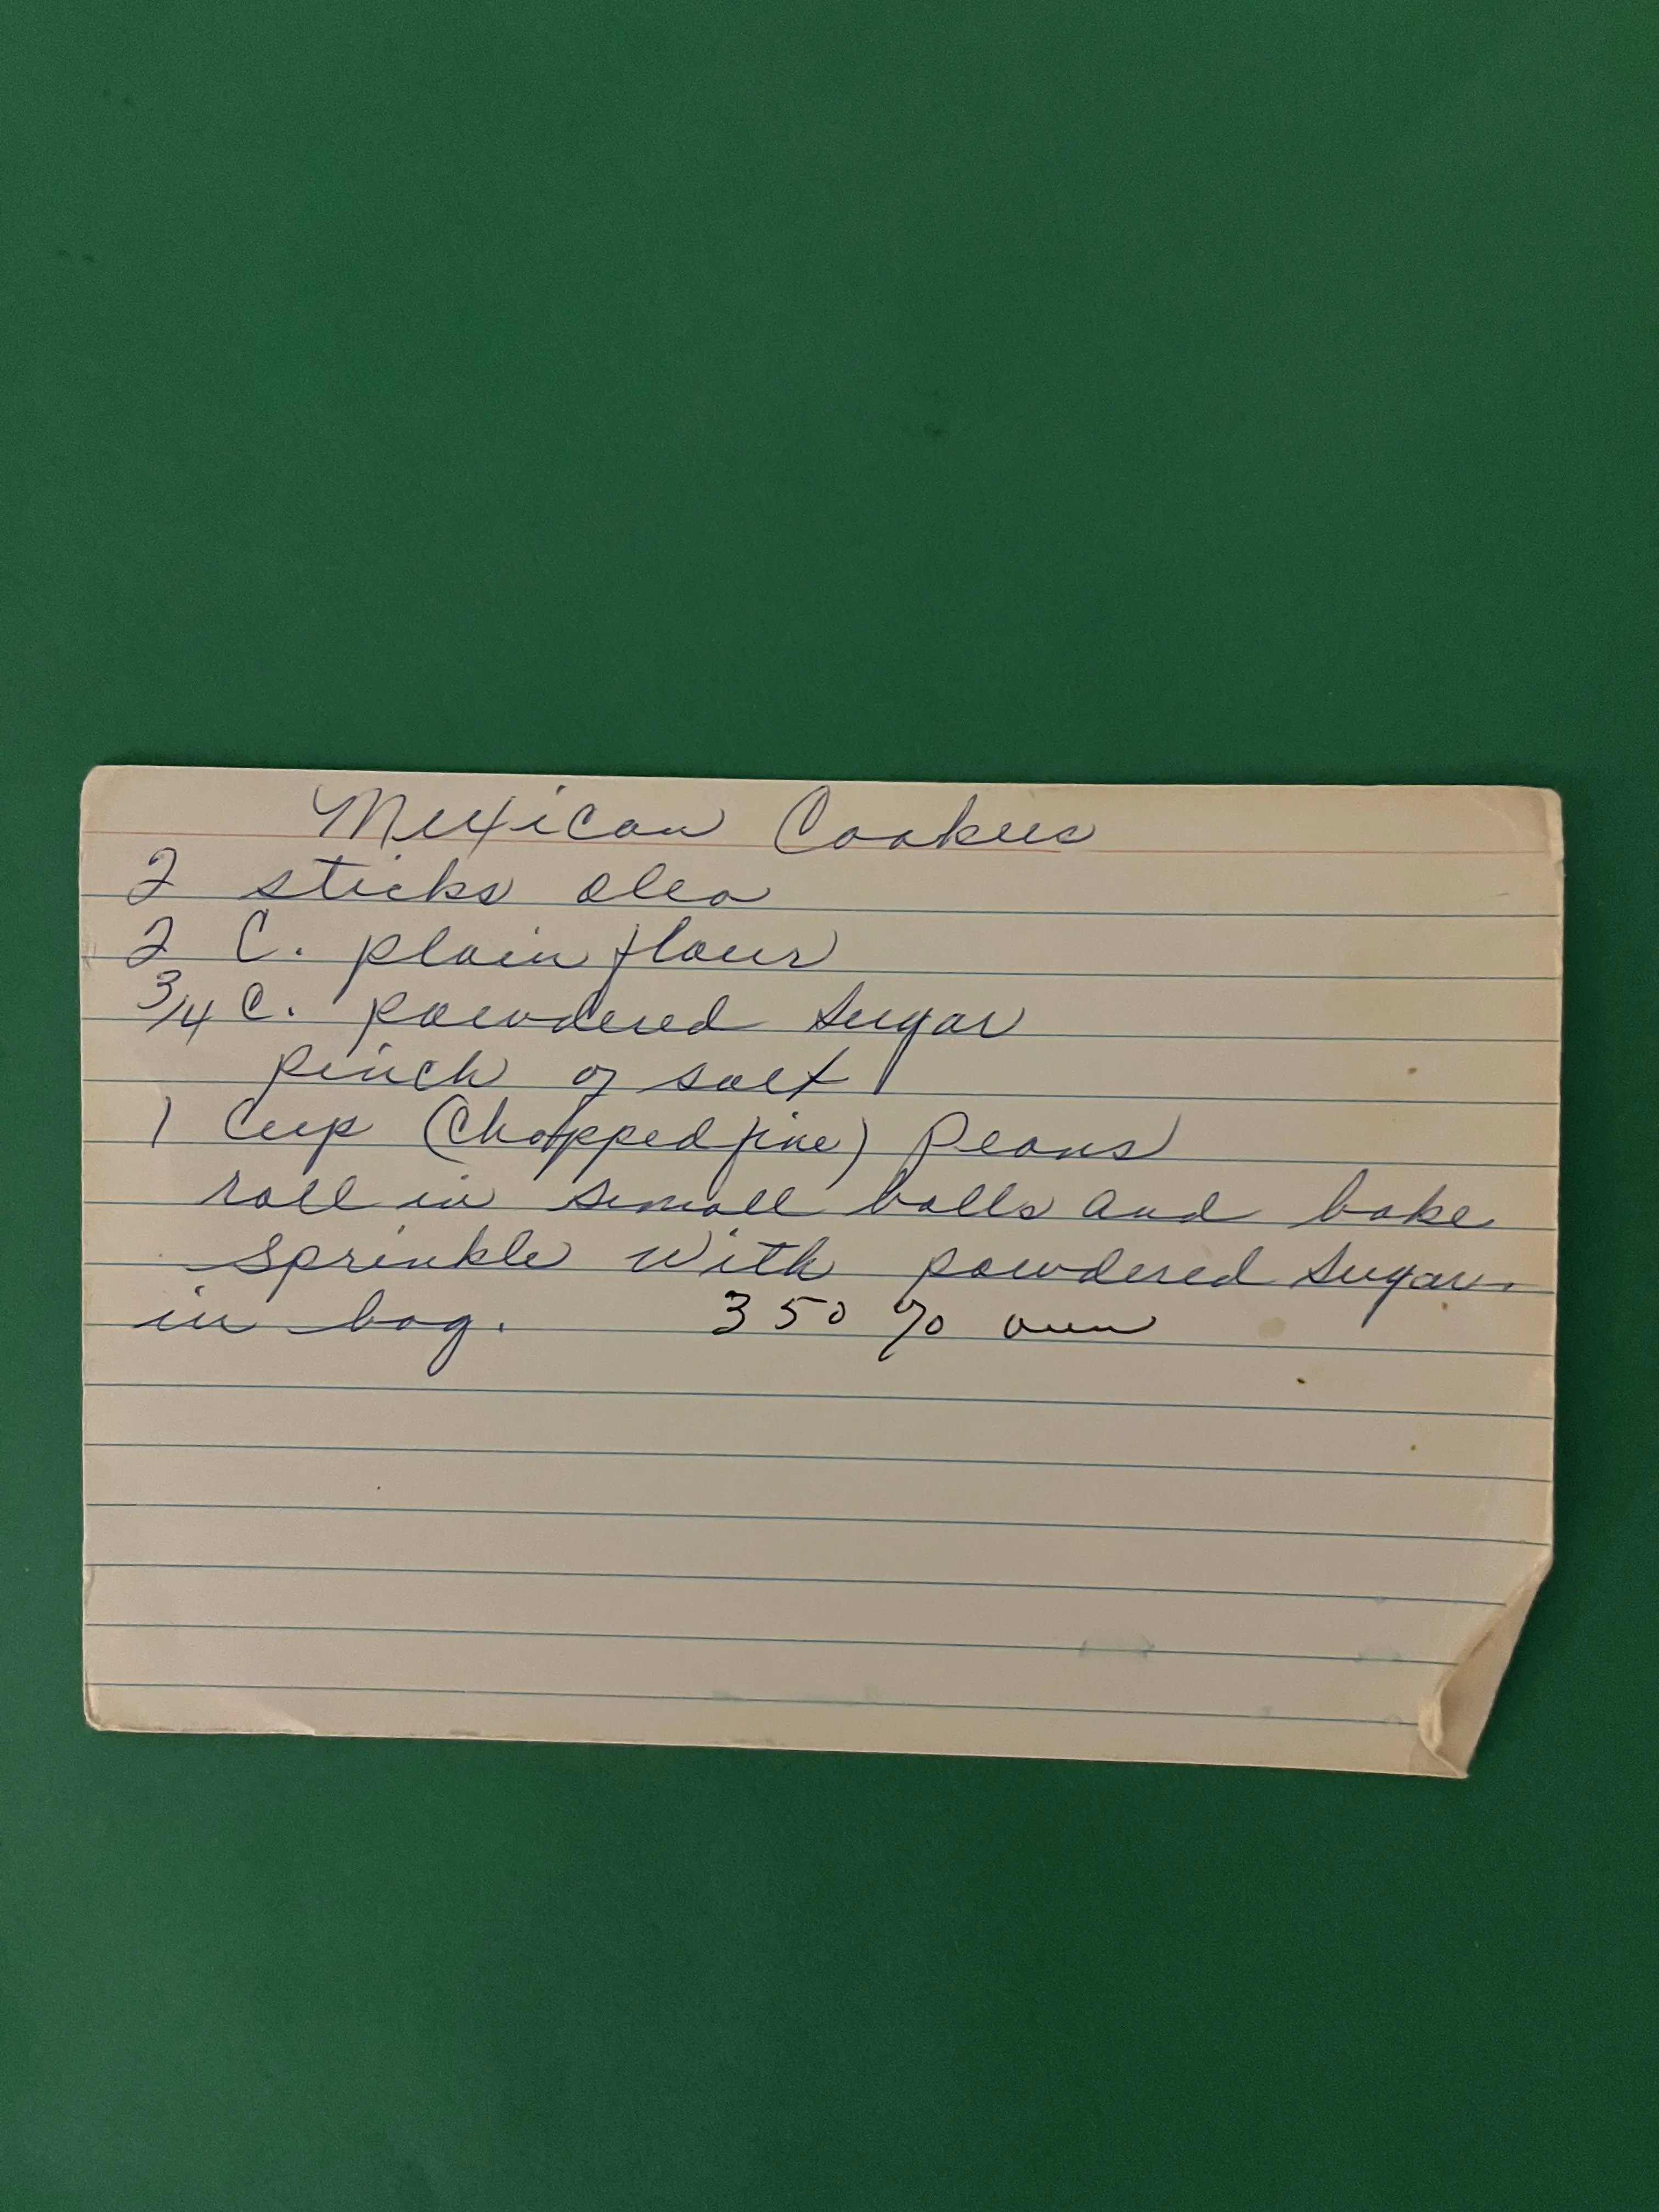 Mexican Cookies
2 sticks oleo
2 C. plain flour
3/4 C. powdered sugar
pinch of salt
1 Cup (Chopped fine) Peans
roll in small balls and bake
sprinkle with powdered sugar
in bag. 350 % oven